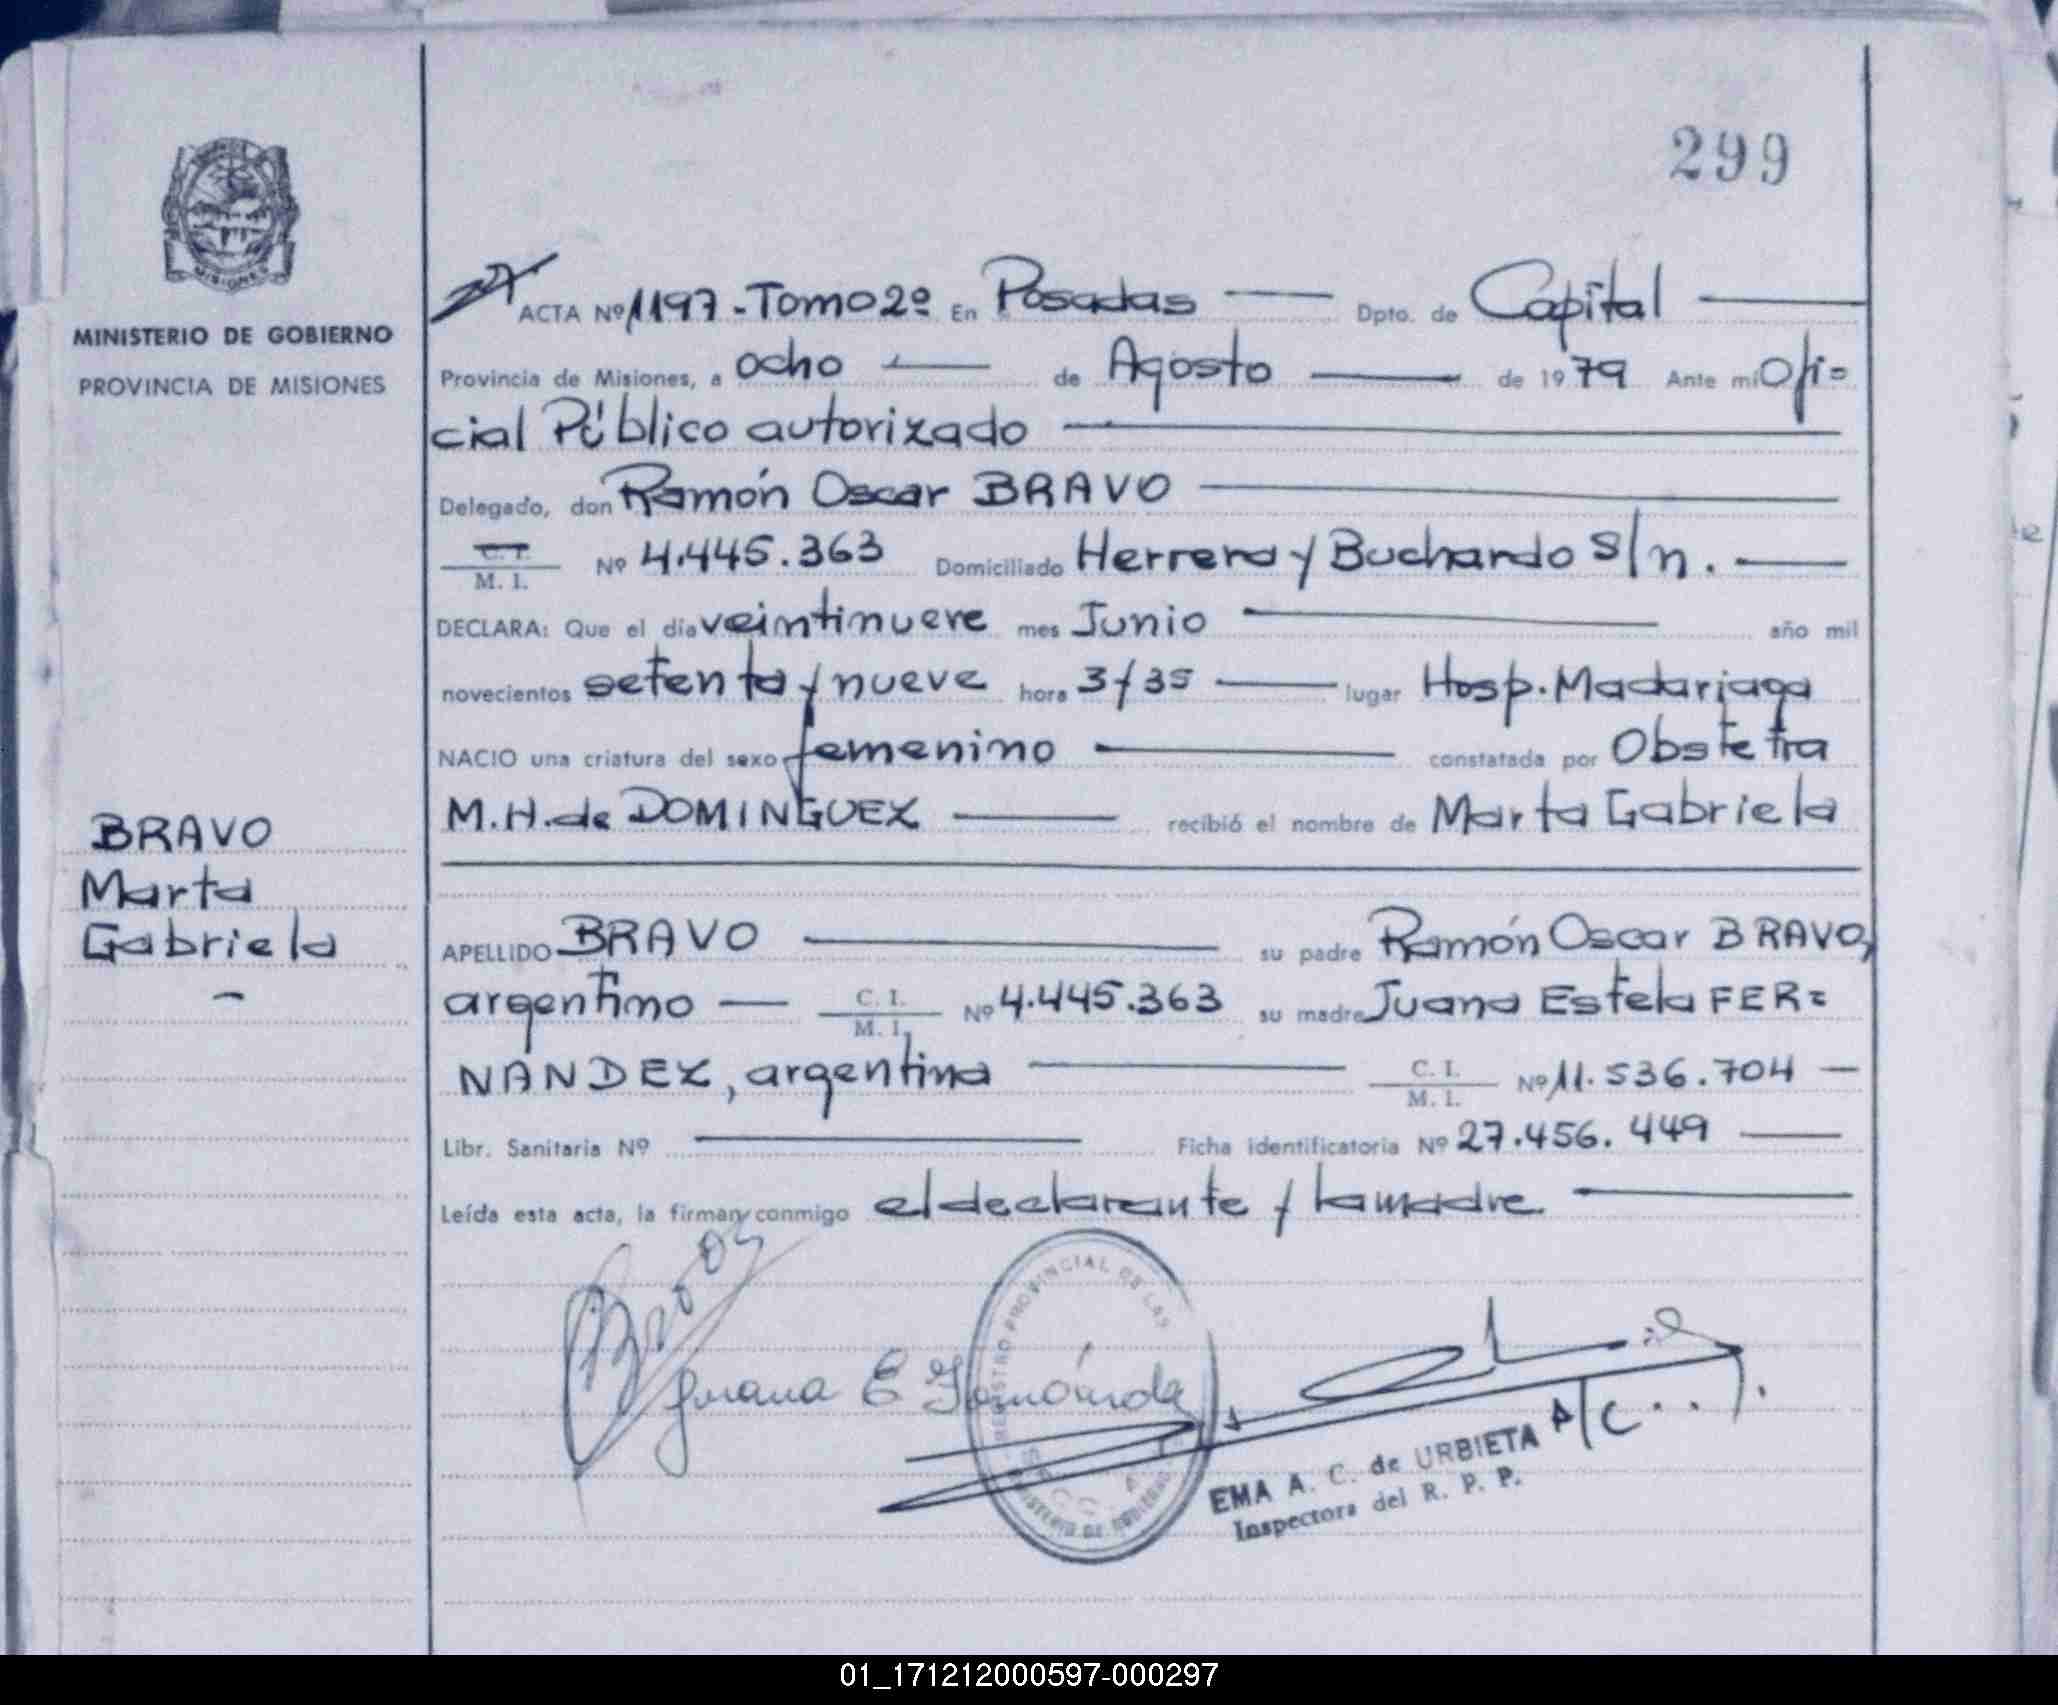 299
MINISTERIO DE GOBIERNO
PROVINCIA DE MISIONES
MISIONES
ACTA Nº 1197 - Tomo 2º En Posadas — Dpto. de Capital —
Provincia de Misiones, a ocho — de Agosto — de 1979 Ante mi Ofi=
cial Público autorizado —
Delegado, don Ramón Oscar BRAVO —
C. I. M. I. Nº 4.445.363 Domiciliado Herrera y Buchardo S/n. —
DECLARA: Que el día veintinueve mes Junio — año mil
novecientos setenta y nueve hora 3/35 — lugar Hosp. Madariaga
NACIO una criatura del sexo femenino — constatada por Obstetra
M.H. de DOMINGUEZ — recibió el nombre de Marta Gabriela
BRAVO
Marta
Gabriela
-
APELLIDO BRAVO — su padre Ramón Oscar BRAVO,
argentino — C. I. M. I. Nº 4.445.363 su madre Juana Estela FER=
NÁNDEZ, argentina — C. I. M. I. Nº 11.536.704 —
Libr. Sanitaria Nº — Ficha identificatoria Nº 27.456.449 —
Leída esta acta, la firman conmigo el declarante y la madre. —
Juana E
REGISTRO PROVINCIAL DE LAS
MINISTERIO DE GOBIERNO
A/C
EMA A. C. de URBIETA
Inspectora del R. P. P.
01_171212000597-000297